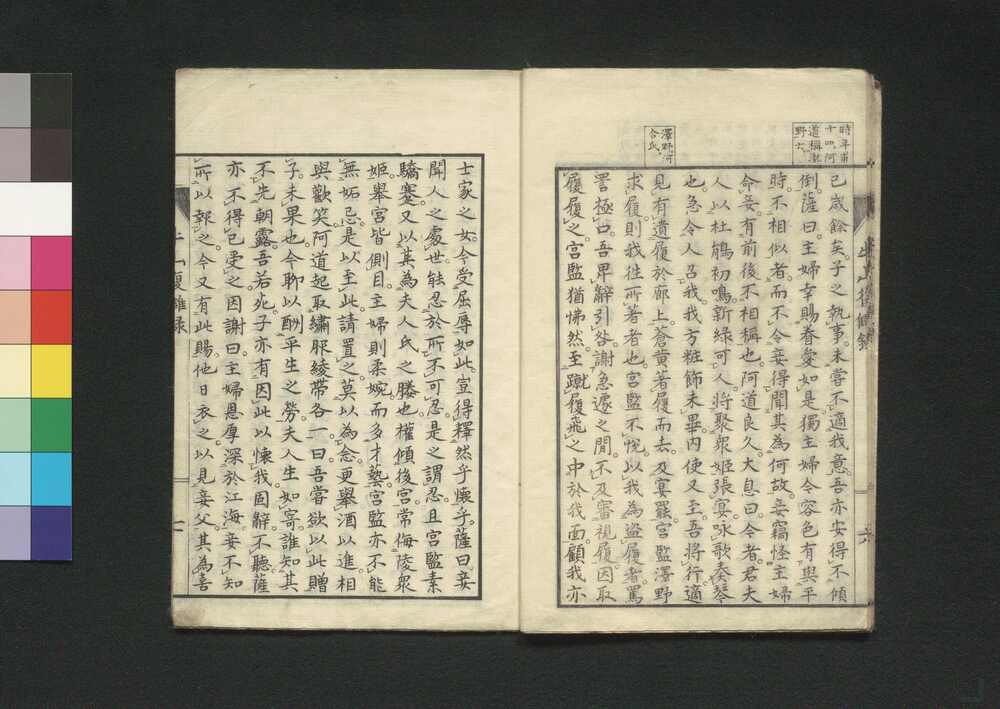 時年甫
十四。河
道稱潮
野七
澤野河
合氏。
已歲餘矣。子之執事。未嘗不適我意。吾亦安得不傾
倒。薩曰。主婦幸賜眷愛如是。獨主婦今容色有與平
時不相似者。而不令妾得聞其為何故。妾竊怪主婦
命妾有前後不相稱也。阿道良久。大息曰。今者。君夫
人以杜鵑初鳴。新綠可人。將聚衆姬張宴。咏歌奏琴
也。急令人召我。我方粧飾未畢。内使又至。吾將行。適
見有遺履於廊上。蒼黄著履而去。及宴罷。宮監澤野
求履。則我徃所著者也。宮監不悅。以我為盜履者。罵
詈極口。吾卑辭引咎。謝急遽之間。不及審視履。因取
履履之。宮監猶怫然。至蹴履飛之中於我面。顧我亦
士家之女。今受屈辱如此。豈得釋然乎懷乎。薩曰。妾
聞人之處世。能忍於所不可忍。是之謂忍。且宮監素
驕蹇。又以其為夫人氏之媵也。權傾後宮。常侮陵衆
姬。舉宮皆側目。主婦則柔婉而多才藝。宮監亦不能
無妬忌。是以至此。請置之。莫以為念。更舉酒以進。相
與歡笑。阿道起取繡服綾帶各一。曰。吾嘗欲以此贈
子。未果也。今聊以酬平生之勞。夫人生如寄。誰知其
不先朝露。吾若死。子亦有因此以懷我。固辭不聽。薩
亦不得已受之。因謝曰。主婦恩厚深於江海。妾不知
所以報之。今又有此賜。他日衣之。以見妾父。其為喜